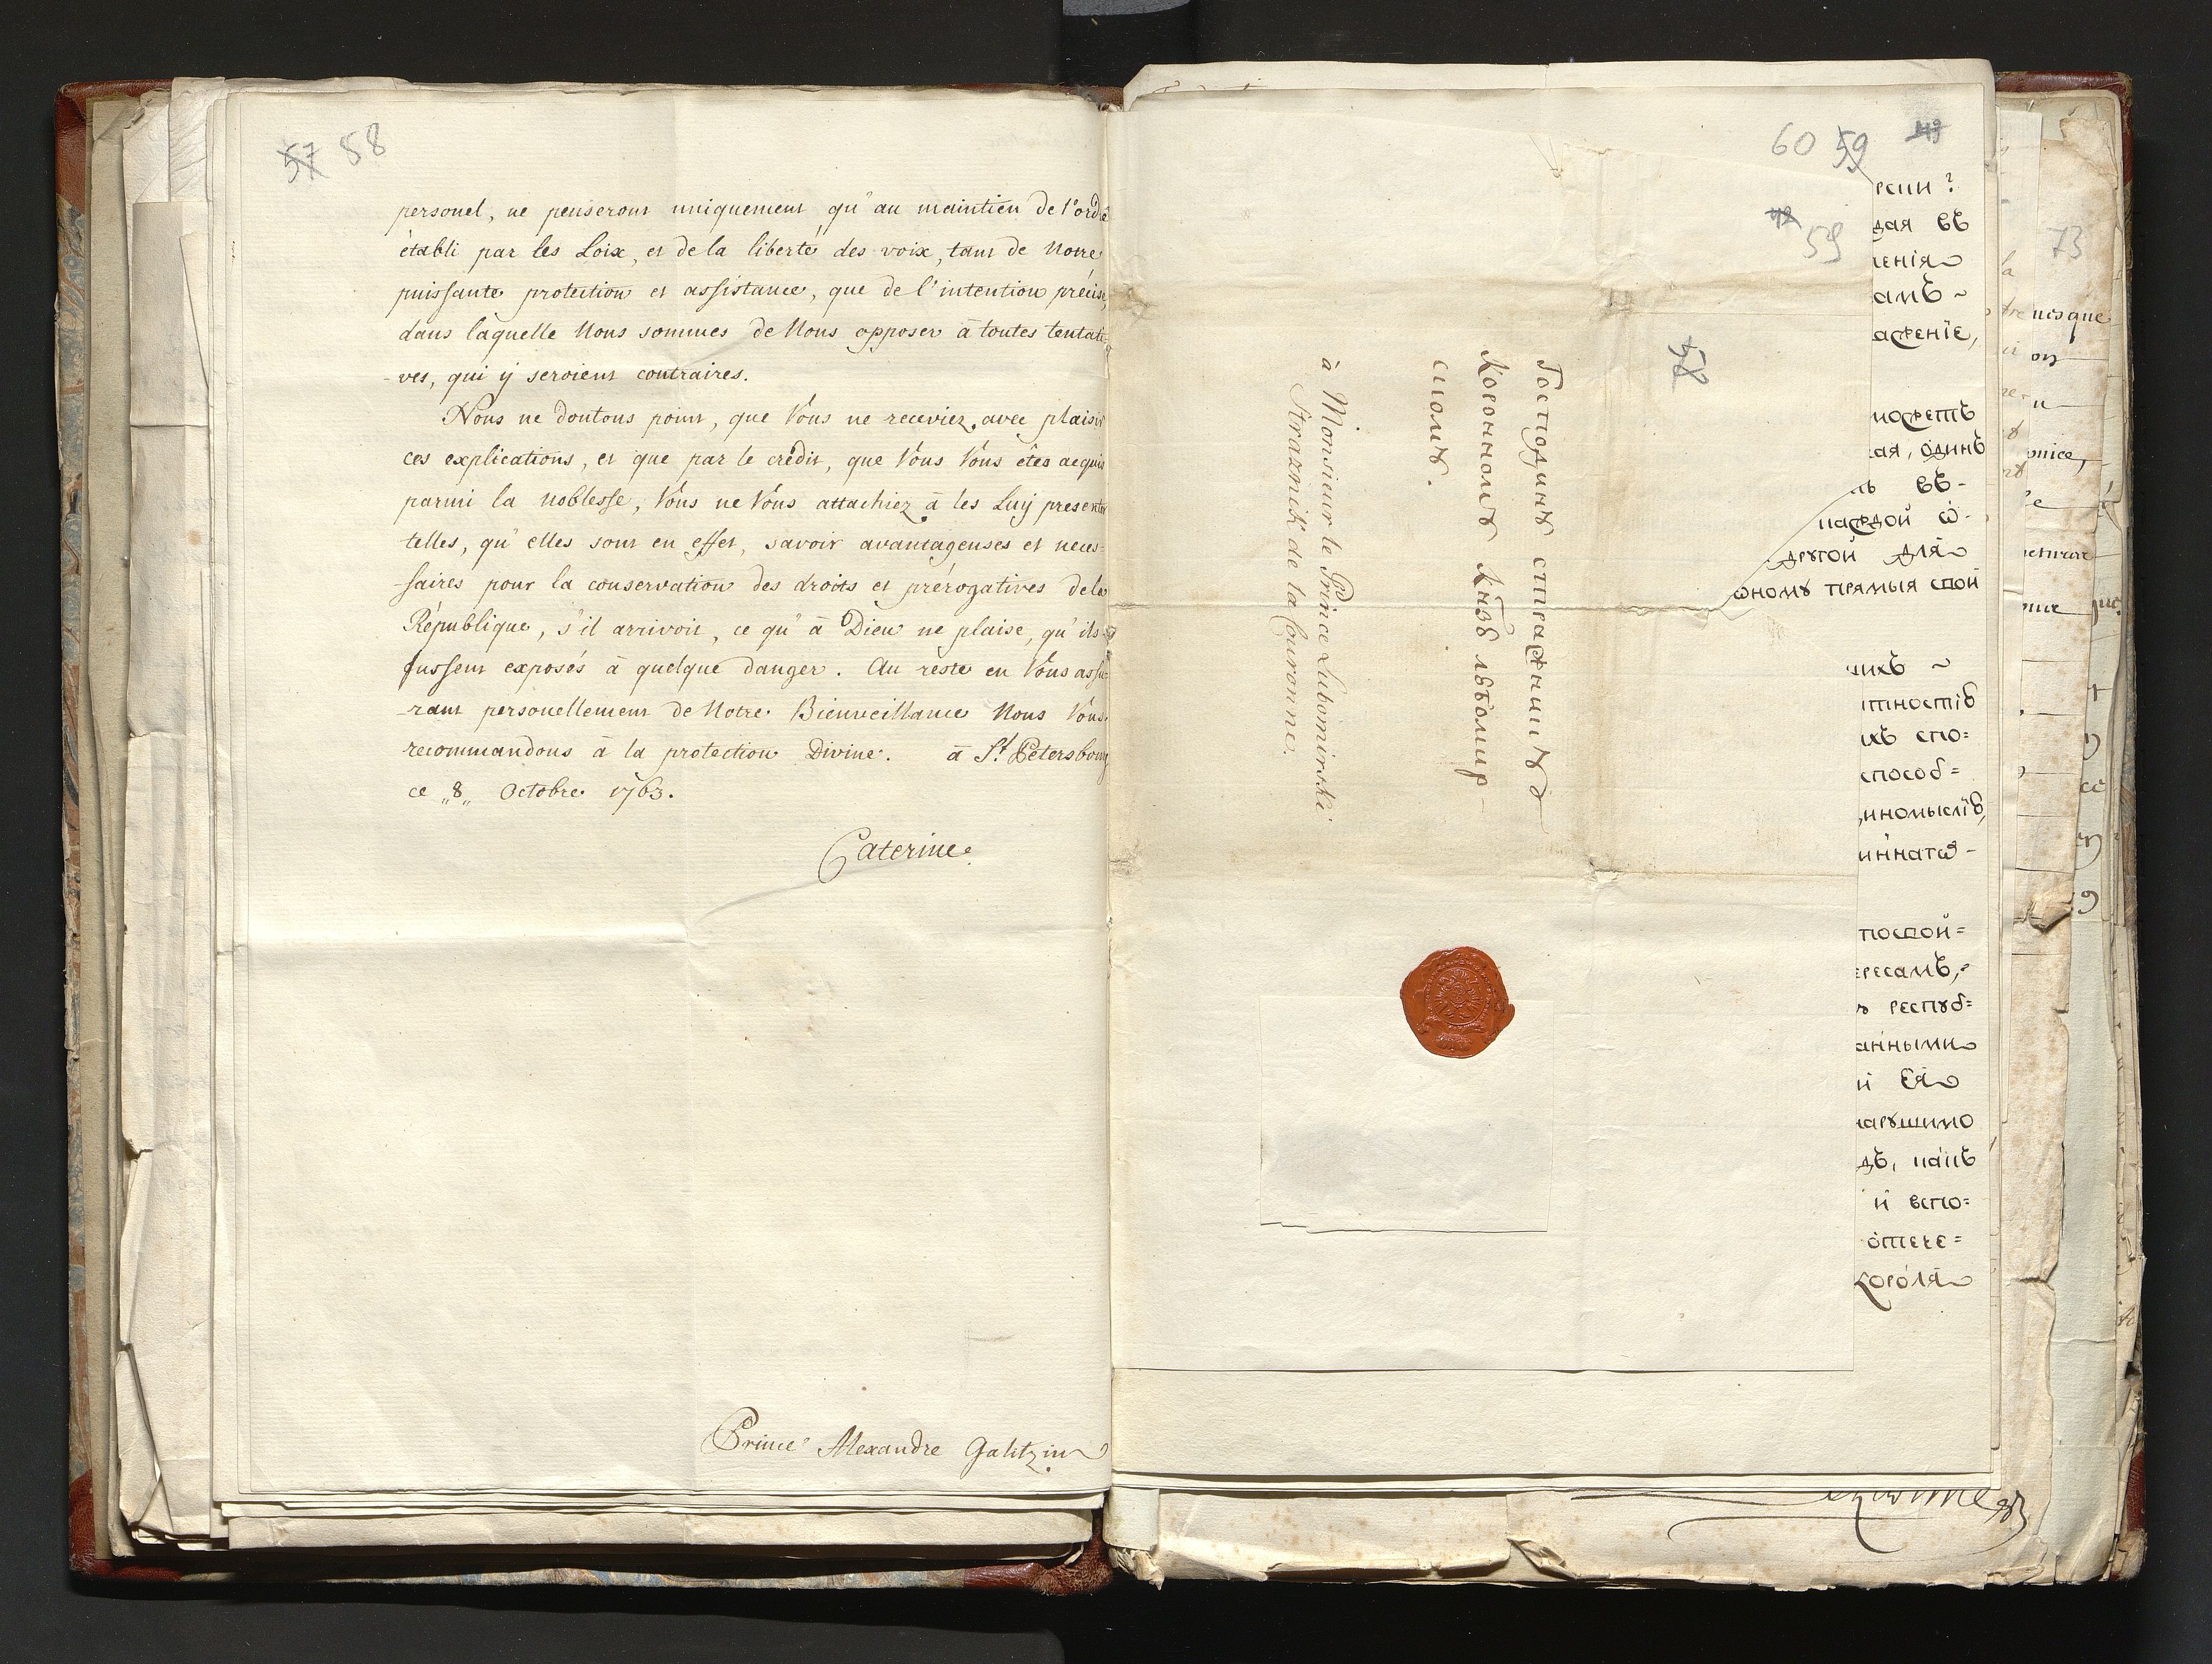 57 58
personel, ne penseront uniquement qu'au maintien de l'ordre
établi par les Loix, et de la liberté des voix, tant de Notre
puissante protection et assistance, que de l'intention précise,
dans laquelle Nous sommes de Nous opposer à toutes tentati-
-ves, qui y seroient contraires.
Nous ne doutons point, que Vous ne receviez avec plaisir
ces explications, et que par le crédit, que Vous Vous êtes acquis
parmi la noblesse, Vous ne Vous attachiez à les Luy presenter
telles, qu'elles sont en effet, savoir avantageuses et neces-
-saires pour la conservation des droits et prérogatives de la
République, s'il arrivoit, ce qu'à Dieu ne plaise, qu'ils
fussent exposés à quelque danger. Au reste en Vous assu-
-rant personellement de Notre Bienveillance Nous Vous
recommandons à la protection Divine. à St. Petersbourg
ce „8„ Octobre 1763.
Caterine.
Prince Alexandre Galitzin
60 59
59
58
Господину стражнику
Коронному Кнзю Любомир-
скому.
à Monsieur le Prince Lubomirski
Straznik de la Couronne.
дая въ
ленія
амъ ~
ая, одинъ
въ-
другой для
оному прямыя свой
ихъ ~
ихъ спо=
способ=
ересамъ,
респуб=
анными
й Ея
арушимо
й вспо=
отече=
короля
73